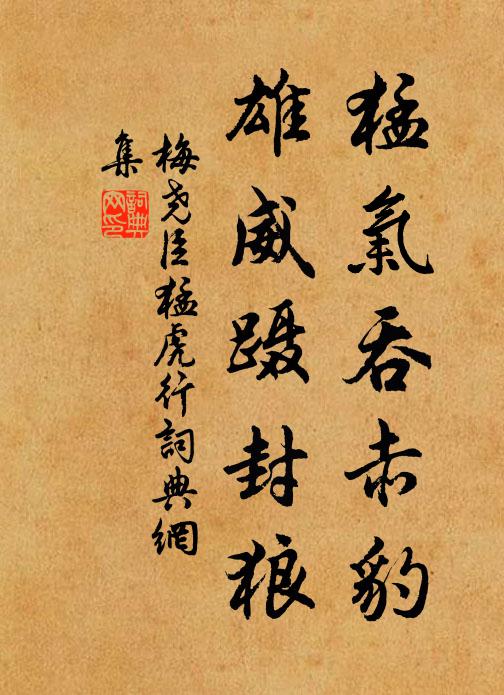 猛氣吞赤豹
雄威蹑封狼
梅尧臣猛虎行詞典網
集
詞典
网印